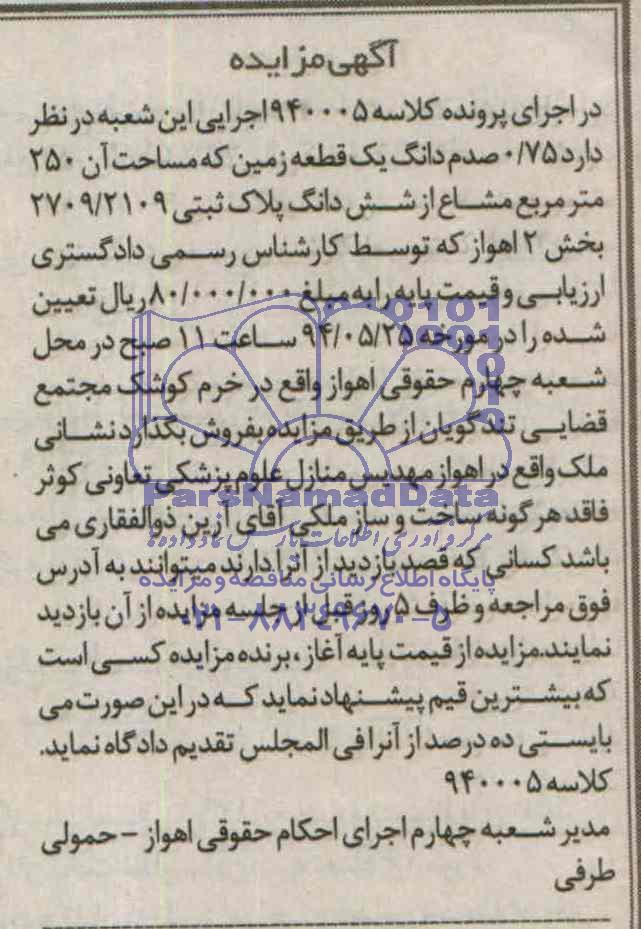 آگهی مزایده
در اجرای پرونده کلاسه ۹۴۰۰۰۵ اجرایی این شعبه در نظر
دارد ۰/۷۵ صدم دانگ یک قطعه زمین که مساحت آن ۲۵۰
متر مربع مشاع از شش دانگ پلاک ثبتی ۲۷۰۹/۲۱۰۹
بخش ۲ اهواز که توسط کارشناس رسمی دادگستری
ارزیابی و قیمت پایه را به مبلغ ۸۰/۰۰۰/۰۰۰ ریال تعیین
شده را در مورخه ۹۴/۰۵/۲۵ ساعت ۱۱ صبح در محل
شعبه چهارم حقوقی اهواز واقع در خرم کوشک مجتمع
قضایی تندگویان از طریق مزایده بفروش بگذارد نشانی
ملک واقع در اهواز مهدیس منازل علوم پزشکی تعاونی کوثر
فاقد هر گونه ساخت و ساز ملکی آقای آژین ذوالفقاری می
باشد کسانی که قصد بازدید از آنرا دارند میتوانند به آدرس
فوق مراجعه و ظرف ۵ روز قبل از جلسه مزایده از آن بازدید
نمایند. مزایده از قیمت پایه آغاز، برنده مزایده کسی است
که بیشترین قیم پیشنهاد نماید که در این صورت می
بایستی ده درصد از آنرا فی المجلس تقدیم دادگاه نماید.
کلاسه ۹۴۰۰۰۵
مدیر شعبه چهارم اجرای احکام حقوقی اهواز - حمولی
طرفی
ParsNamadData
پایگاه اطلاع رسانی مناقصه و مزایده
۰۲۱-۸۸۳۴۹۶۷۰-۵